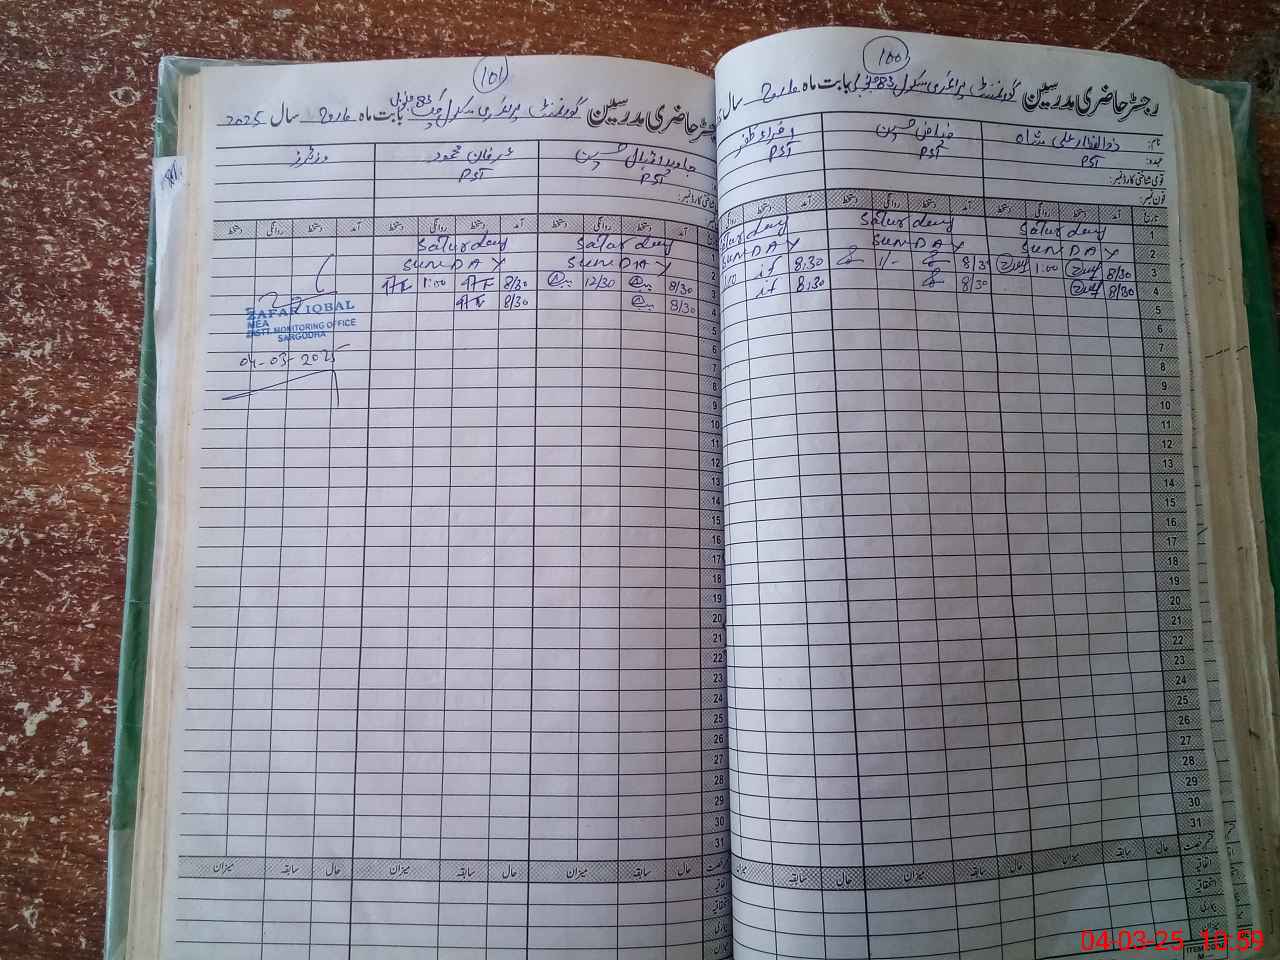 100
رجسٹر حاضری مدرسین گورنمنٹ پرائمری سکول 83 بابت ماہ مارچ سال
نام: ذوالفقار علی شاہ فیاض حسین ظفر
عہدہ: PST PST PST
قومی شناختی کارڈ نمبر:
فون نمبر:
تاریخ آمد دستخط روانگی دستخط آمد دستخط روانگی دستخط آمد دستخط روانگی
1 Saturday Saturday
2 SUNDAY SUNDAY SUNDAY
3 8/30 1:00 8/30 1/- 8:30
4 8/30 8/30 8:30
5
6
7
8
9
10
11
12
13
14
15
16
17
18
19
20
21
22
23
24
25
26
27
28
29
30
31
قسم رخصت حال سابقہ میزان حال سابقہ میزان حال سابقہ میزان
اتفاقیہ
استحقاقیہ
بیماری
میزان
101
رجسٹر حاضری مدرسین گورنمنٹ پرائمری سکول 83 بابت ماہ مارچ سال 2025
جاوید اقبال حسین عرفان محمود وزیٹرز
PST PST
آمد دستخط روانگی دستخط آمد دستخط روانگی دستخط آمد دستخط روانگی دستخط
1 Saturday Saturday
2 SUNDAY SUNDAY
3 8/30 12/30 8/30 1:00
4 8/30 8/30
ZAFAR IQBAL
MEA
DISTT. MONITORING OFFICE
SARGODHA
04-03-2025
5
6
7
8
9
10
11
12
13
14
15
16
17
18
19
20
21
22
23
24
25
26
27
28
29
30
31
حال سابقہ میزان حال سابقہ میزان حال سابقہ میزان
اتفاقیہ
استحقاقیہ
بیماری
میزان
04-03-25 10:59